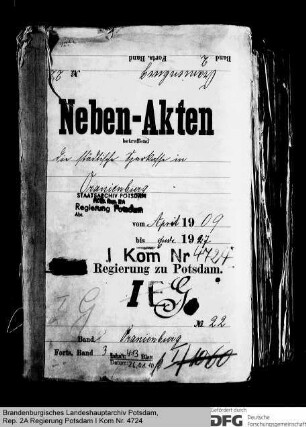 Oranienburg
Neben-Akten
betreffend
die städtische Sparkasse in
Oranienburg
STAATSARCHIV POTSDAM
Regierung Potsdam
vom April 1909
bis Ende 1927
I Kom Nr 4724
Regierung zu Potsdam.
I E G
I G
№ 22
Band Oranienburg
Forts. Band 3
Brandenburgisches Landeshauptarchiv Potsdam,
Rep. 2A Regierung Potsdam I Kom Nr. 4724
Gefördert durch
DFG Deutsche
Forschungsgemeinschaft